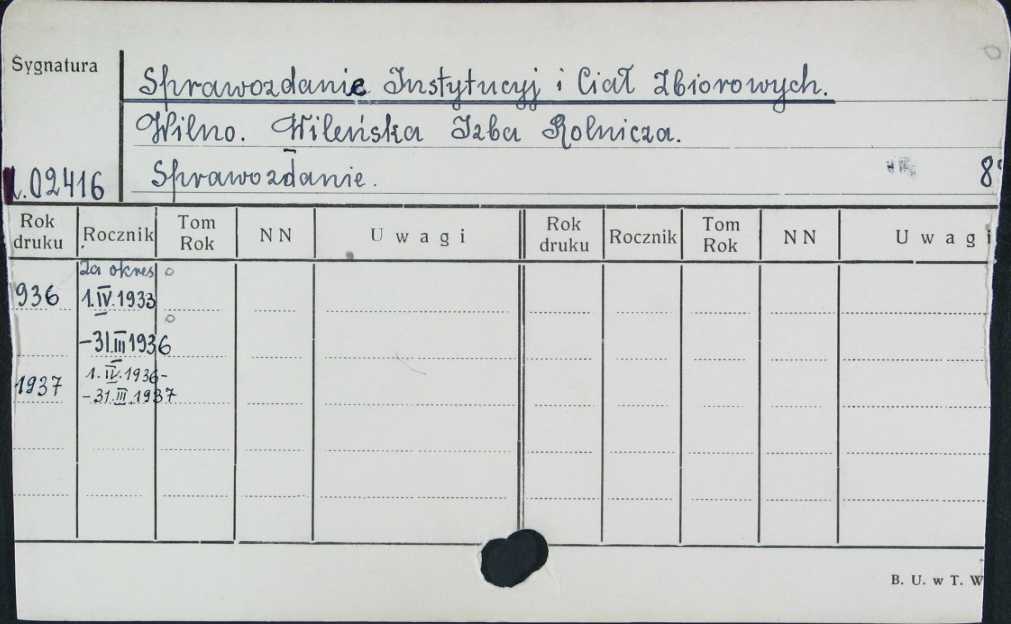 Sygnatura
Sprawozdanie Instytucyj i Ciał Zbiorowych.
Wilno. Wileńska Izba Rolnicza.
02416 Sprawozdanie. 8°
Rok druku Rocznik Tom Rok NN Uwagi Rok druku Rocznik Tom Rok NN Uwagi
za okres
936 1.IV.1933
-31.III 1936
1.IV.1936-
1937 -31.III.1937
B. U. w T. W